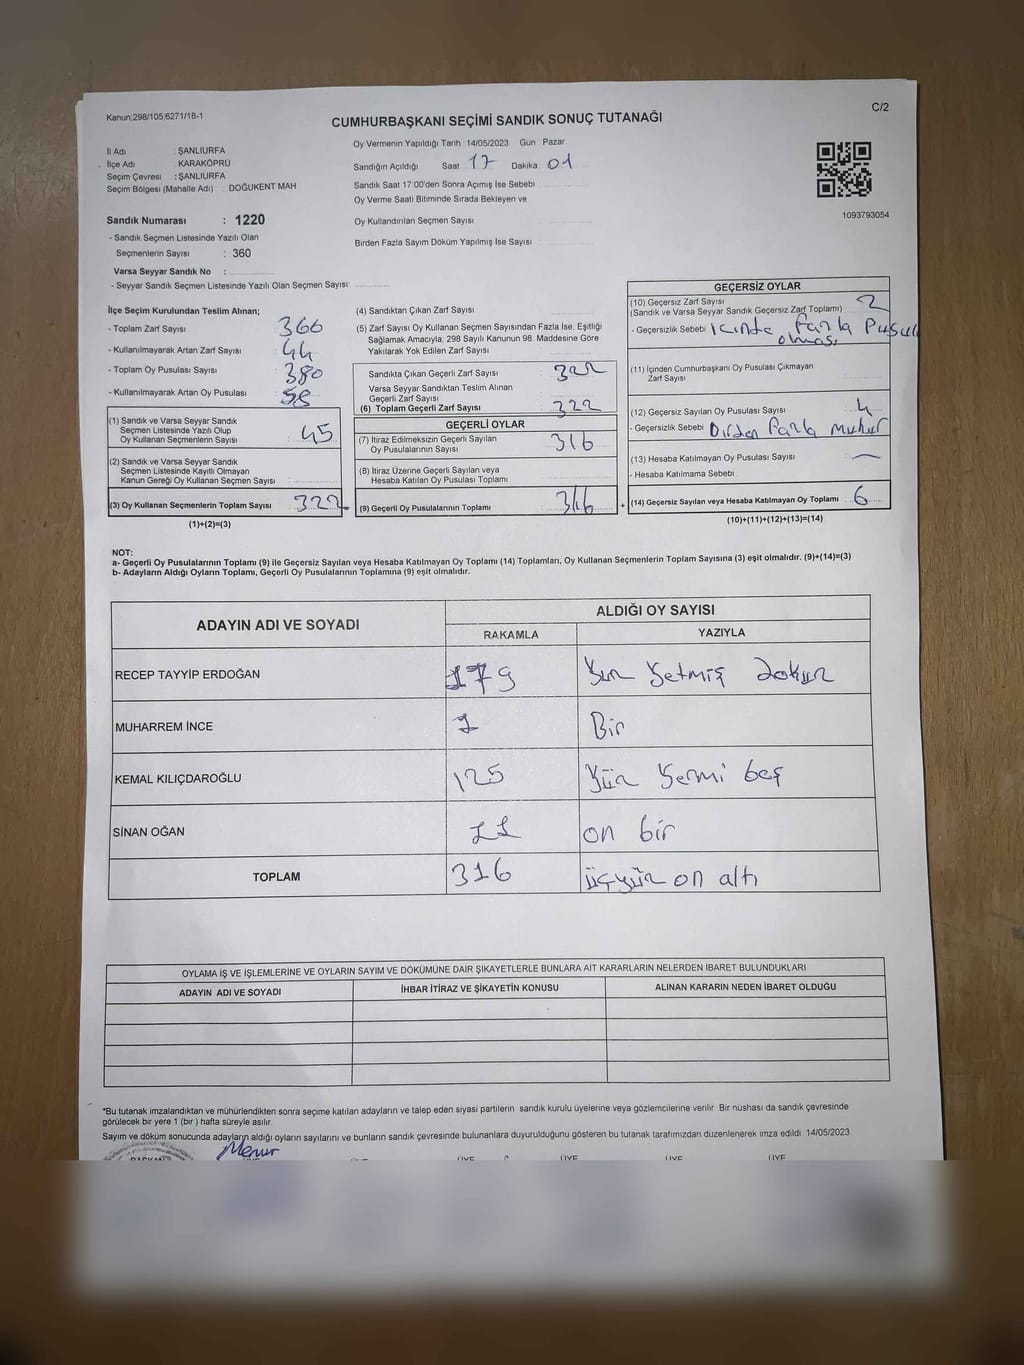 Kanun;298/105;6271/18-1
C/2
CUMHURBAŞKANI SEÇİMİ SANDIK SONUÇ TUTANAĞI
İl Adı : ŞANLIURFA
İlçe Adı : KARAKÖPRÜ
Seçim Çevresi : ŞANLIURFA
Seçim Bölgesi (Mahalle Adı) : DOĞUKENT MAH
Sandık Numarası : 1220
- Sandık Seçmen Listesinde Yazılı Olan
Seçmenlerin Sayısı : 360
Varsa Seyyar Sandık No :
- Seyyar Sandık Seçmen Listesinde Yazılı Olan Seçmen Sayısı:
Oy Vermenin Yapıldığı Tarih 14/05/2023 Gün : Pazar
Sandığın Açıldığı Saat 17 Dakika 01
Sandık Saat 17:00'den Sonra Açımış İse Sebebi
Oy Verme Saati Bitiminde Sırada Bekleyen ve
Oy Kullandırılan Seçmen Sayısı
Birden Fazla Sayım Döküm Yapılmış İse Sayısı
1093793054
İlçe Seçim Kurulundan Teslim Alınan;
- Toplam Zarf Sayısı : 366
- Kullanılmayarak Artan Zarf Sayısı : 44
- Toplam Oy Pusulası Sayısı : 380
- Kullanılmayarak Artan Oy Pusulası : 58
(1) Sandık ve Varsa Seyyar Sandık
Seçmen Listesinde Yazılı Olup
Oy Kullanan Seçmenlerin Sayısı : 45
(2) Sandık ve Varsa Seyyar Sandık
Seçmen Listesinde Kayıtlı Olmayan
Kanun Gereği Oy Kullanan Seçmen Sayısı :
(3) Oy Kullanan Seçmenlerin Toplam Sayısı : 322
(1)+(2)=(3)
(4) Sandıktan Çıkan Zarf Sayısı
(5) Zarf Sayısı Oy Kullanan Seçmen Sayısından Fazla İse, Eşitliği
Sağlamak Amacıyla; 298 Sayılı Kanunun 98. Maddesine Göre
Yakılarak Yok Edilen Zarf Sayısı
Sandıkta Çıkan Geçerli Zarf Sayısı : 322
Varsa Seyyar Sandıktan Teslim Alınan
Geçerli Zarf Sayısı
(6) Toplam Geçerli Zarf Sayısı : 322
GEÇERLİ OYLAR
(7) İtiraz Edilmeksizin Geçerli Sayılan
Oy Pusulalarının Sayısı : 316
(8) İtiraz Üzerine Geçerli Sayılan veya
Hesaba Katılan Oy Pusulası Toplamı
(9) Geçerli Oy Pusulalarının Toplamı : 316
+
GEÇERSİZ OYLAR
(10) Geçersiz Zarf Sayısı
(Sandık ve Varsa Seyyar Sandık Geçersiz Zarf Toplamı) : 2
- Geçersizlik Sebebi içinde fazla Pusula
olması
(11) İçinden Cumhurbaşkanı Oy Pusulası Çıkmayan
Zarf Sayısı
(12) Geçersiz Sayılan Oy Pusulası Sayısı : 4
- Geçersizlik Sebebi birden fazla muhur
(13) Hesaba Katılmayan Oy Pusulası Sayısı : —
- Hesaba Katılmama Sebebi
(14) Geçersiz Sayılan veya Hesaba Katılmayan Oy Toplamı : 6
(10)+(11)+(12)+(13)=(14)
NOT:
a- Geçerli Oy Pusulalarının Toplamı (9) ile Geçersiz Sayılan veya Hesaba Katılmayan Oy Toplamı (14) Toplamları, Oy Kullanan Seçmenlerin Toplam Sayısına (3) eşit olmalıdır. (9)+(14)=(3)
b- Adayların Aldığı Oyların Toplamı, Geçerli Oy Pusulalarının Toplamına (9) eşit olmalıdır.
ADAYIN ADI VE SOYADI
ALDIĞI OY SAYISI
RAKAMLA YAZIYLA
RECEP TAYYİP ERDOĞAN 179 Yüz Yetmiş dokuz
MUHARREM İNCE 1 Bir
KEMAL KILIÇDAROĞLU 125 Yüz Yermi beş
SİNAN OĞAN 11 on bir
TOPLAM 316 üçyüz on altı
OYLAMA İŞ VE İŞLEMLERİNE VE OYLARIN SAYIM VE DÖKÜMÜNE DAİR ŞİKAYETLERLE BUNLARA AİT KARARLARIN NELERDEN İBARET BULUNDUKLARI
ADAYIN ADI VE SOYADI İHBAR İTİRAZ VE ŞİKAYETİN KONUSU ALINAN KARARIN NEDEN İBARET OLDUĞU
*Bu tutanak imzalandıktan ve mühürlendikten sonra seçime katılan adayların ve talep eden siyasi partilerin sandık kurulu üyelerine veya gözlemcilerine verilir. Bir nüshası da sandık çevresinde
görülecek bir yere 1 (bir) hafta süreyle asılır.
Sayım ve döküm sonucunda adayların aldığı oyların sayılarını ve bunların sandık çevresinde bulunanlara duyurulduğunu gösteren bu tutanak tarafımızdan düzenlenerek imza edildi. 14/05/2023
BAŞKAN Memur ÜYE ÜYE ÜYE ÜYE